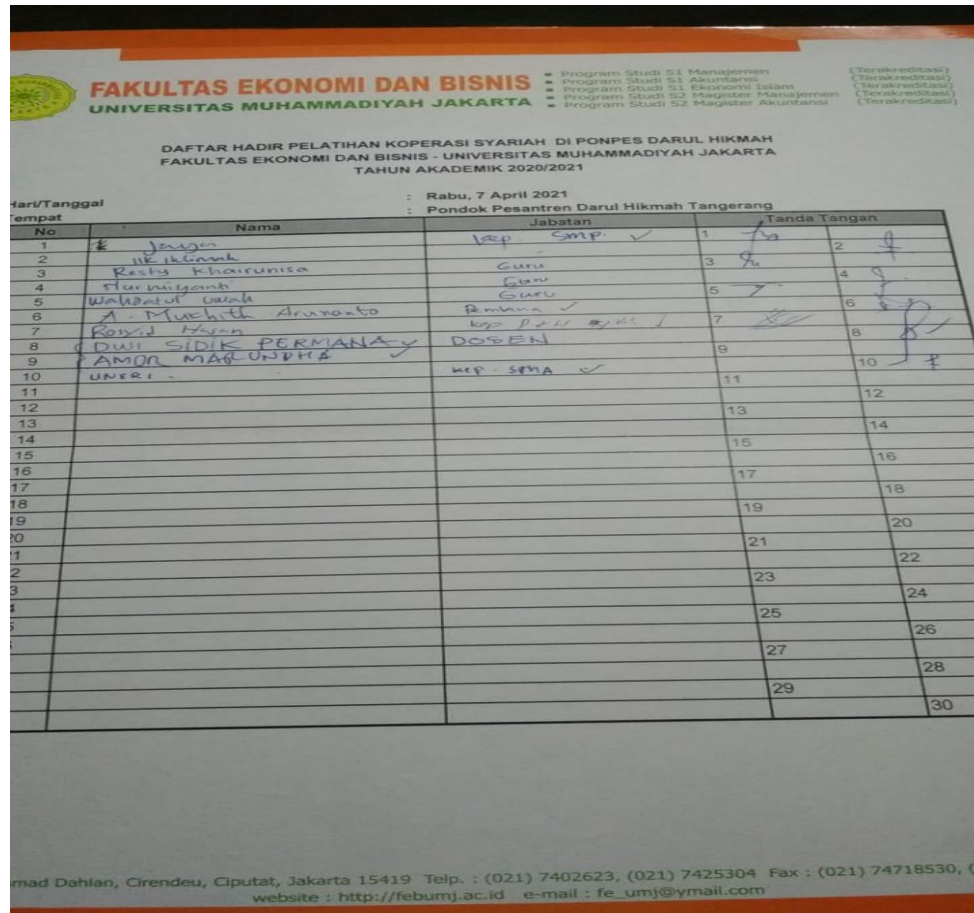 FAKULTAS EKONOMI DAN BISNIS
UNIVERSITAS MUHAMMADIYAH JAKARTA
Program Studi S1 Manajemen (Terakreditasi)
Program Studi S1 Akuntansi (Terakreditasi)
Program Studi S1 Ekonomi Islam (Terakreditasi)
Program Studi S2 Magister Manajemen (Terakreditasi)
Program Studi S2 Magister Akuntansi (Terakreditasi)
DAFTAR HADIR PELATIHAN KOPERASI SYARIAH DI PONPES DARUL HIKMAH
FAKULTAS EKONOMI DAN BISNIS - UNIVERSITAS MUHAMMADIYAH JAKARTA
TAHUN AKADEMIK 2020/2021
Hari/Tanggal : Rabu, 7 April 2021
Tempat : Pondok Pesantren Darul Hikmah Tangerang
No Nama Jabatan Tanda Tangan
1 SMP. 1
2 2
3 Resty Khairunisa Guru 3
4 Nurmiyanti Guru 4
5 Guru 5
6 A. Muchith Arunanto 6
7 Rosyid Hasan 7
8 DWI SIDIK PERMANA DOSEN 8
9 AMOR MARUNDHA 9
10 SMA 10
11 11
12 12
13 13
14 14
15 15
16 16
17 17
18 18
19 19
20 20
21 21
22 22
23 23
24
25
26
27
28
29
30
mad Dahlan, Cirendeu, Ciputat, Jakarta 15419 Telp. : (021) 7402623, (021) 7425304 Fax : (021) 74718530, (
website : http://febumj.ac.id e-mail : fe_umj@ymail.com